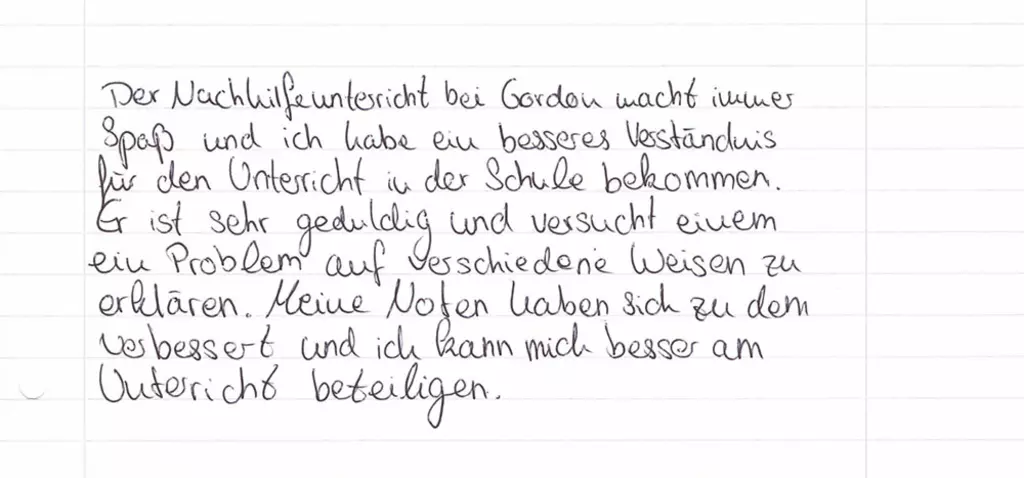 Der Nachhilfeunterricht bei Gordon macht immer
Spaß und ich habe ein besseres Verständnis
für den Unterricht in der Schule bekommen.
Er ist sehr geduldig und versucht einem
ein Problem auf verschiedene Weisen zu
erklären. Meine Noten haben sich zu dem
verbessert und ich kann mich besser am
Unterricht beteiligen.